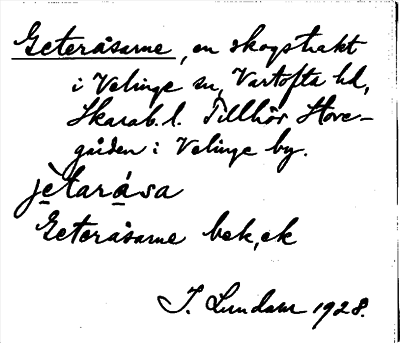 Geteråsarne, en skogstrakt
i Velinge sn, Vartofta hd,
Skarab. l. Tillhör Store-
gården i Velinge by.
jètarása
Geteråsarne bek, ek
J. Lundahl 1928.